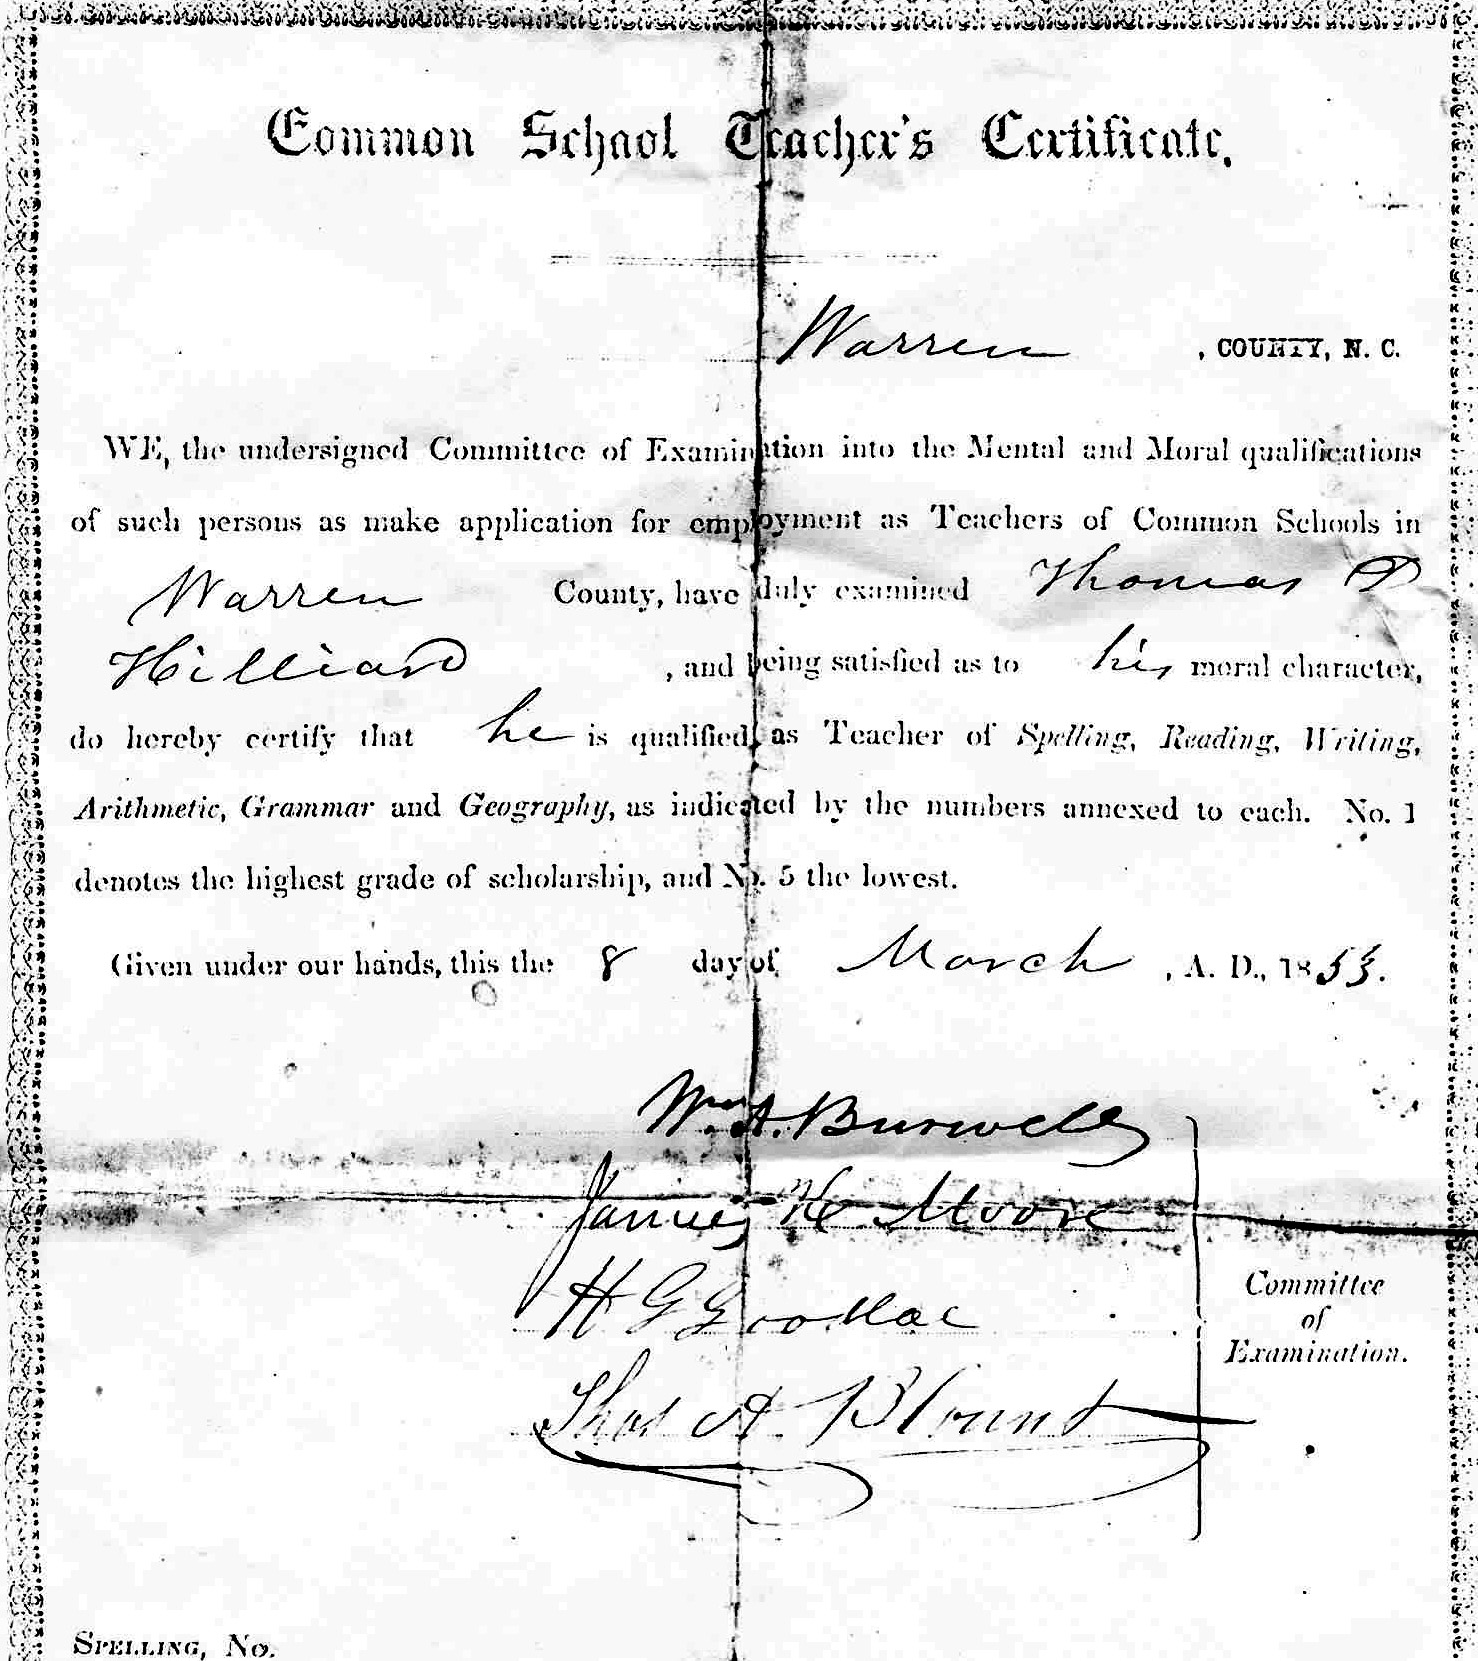 Common School Teacher's Certificate.
Warren , COUNTY, N. C.
WE, the undersigned Committee of Examination into the Mental and Moral qualifications
of such persons as make application for employment as Teachers of Common Schools in
Warren County, have duly examined Thomas P
Hilliard , and being satisfied as to his moral character,
do hereby certify that he is qualified as Teacher of Spelling, Reading, Writing,
Arithmetic, Grammar and Geography, as indicated by the numbers annexed to each. No. 1
denotes the highest grade of scholarship, and No. 5 the lowest.
Given under our hands, this the 8 day of March , A. D., 1853.
Wm. A. Burwell
James H Moore
H G Goodloe
Thos A Blount
Committee
of
Examination.
SPELLING, No.